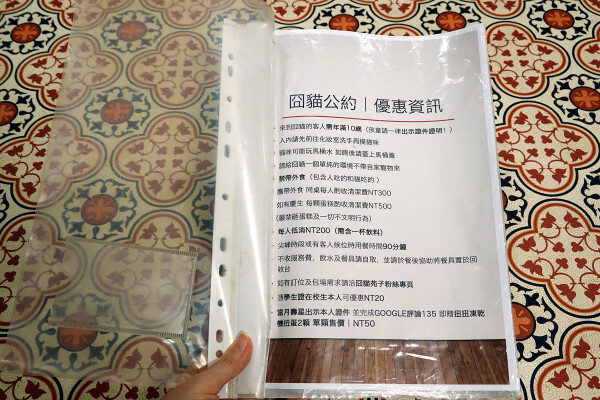 囧貓公約｜優惠資訊
來到囧貓的客人需年滿10歲（孩童請一律出示證件證明！）
入內請先前往化妝室洗手再摸貓咪
貓咪可能玩馬桶水 如廁後請蓋上馬桶蓋
請給囧貓一個單純的環境不帶自家寵物來
禁帶外食（包含人吃的和貓吃的）
攜帶外食 同桌每人酌收清潔費NT300
如有慶生 每顆蛋糕酌收清潔費NT500
（嚴禁砸蛋糕及一切不文明行為）
每人低消NT200（需含一杯飲料）
尖峰時段或有客人候位時用餐時間90分鐘
不收服務費，飲水及餐具請自取，並請於餐後協助將餐具置於回
收台
如有訂位及包場需求請洽囧貓苑子粉絲專頁
憑學生證在校生本人可優惠NT20
當月壽星出示本人證件 並完成GOOGLE評論135 即贈扭扭凍乾
機扭蛋2顆 單顆售價｜NT50